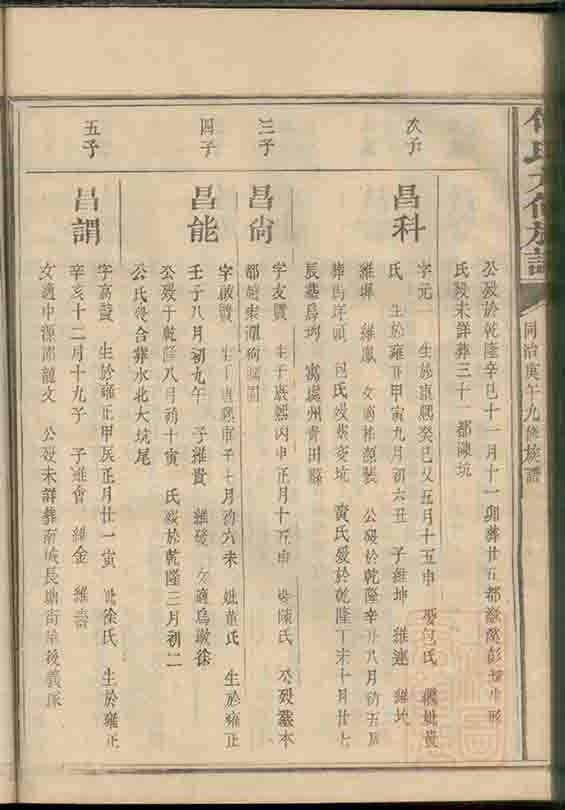 氏 修族譜
同治庚午九修族譜
公殁於乾隆辛巳十一月十一卯葬廿五都 彭 形
氏殁未詳葬三十一都陳坑
次子
昌科
字元一 生於康熙癸巳又五月十五申 娶包氏 繼妣黃
氏 生於雍正甲寅九月初六丑 子維坤 維連 維坎
維墀 維鳳 女適梓源裴 公殁於乾隆辛丑八月初五辰
葬馬洋頭 包氏殁葬 坑 黃氏殁於乾隆丁未十月廿七
辰墓 坳 寓處州青田縣
三子
昌尚
字友賢 生于康熙丙申正月十五申 娶陳氏 公殁葬本
都 潭狗 園
四子
昌能
字啟賢 生于康熙 七月初六未 妣董氏 生於雍正
壬子八月初九午 子維貴 維發 女適烏墩徐
公殁于乾隆八月初十寅 氏殁於乾隆三月初二
公氏殁合葬水北大坑尾
五子
昌謂
字高 生於雍正甲辰正月廿一寅 妣徐氏 生於雍正
辛亥十二月十九子 子維會 維金 維壽
女適中源鄭龍文 公殁未詳葬 長塘 後義冢